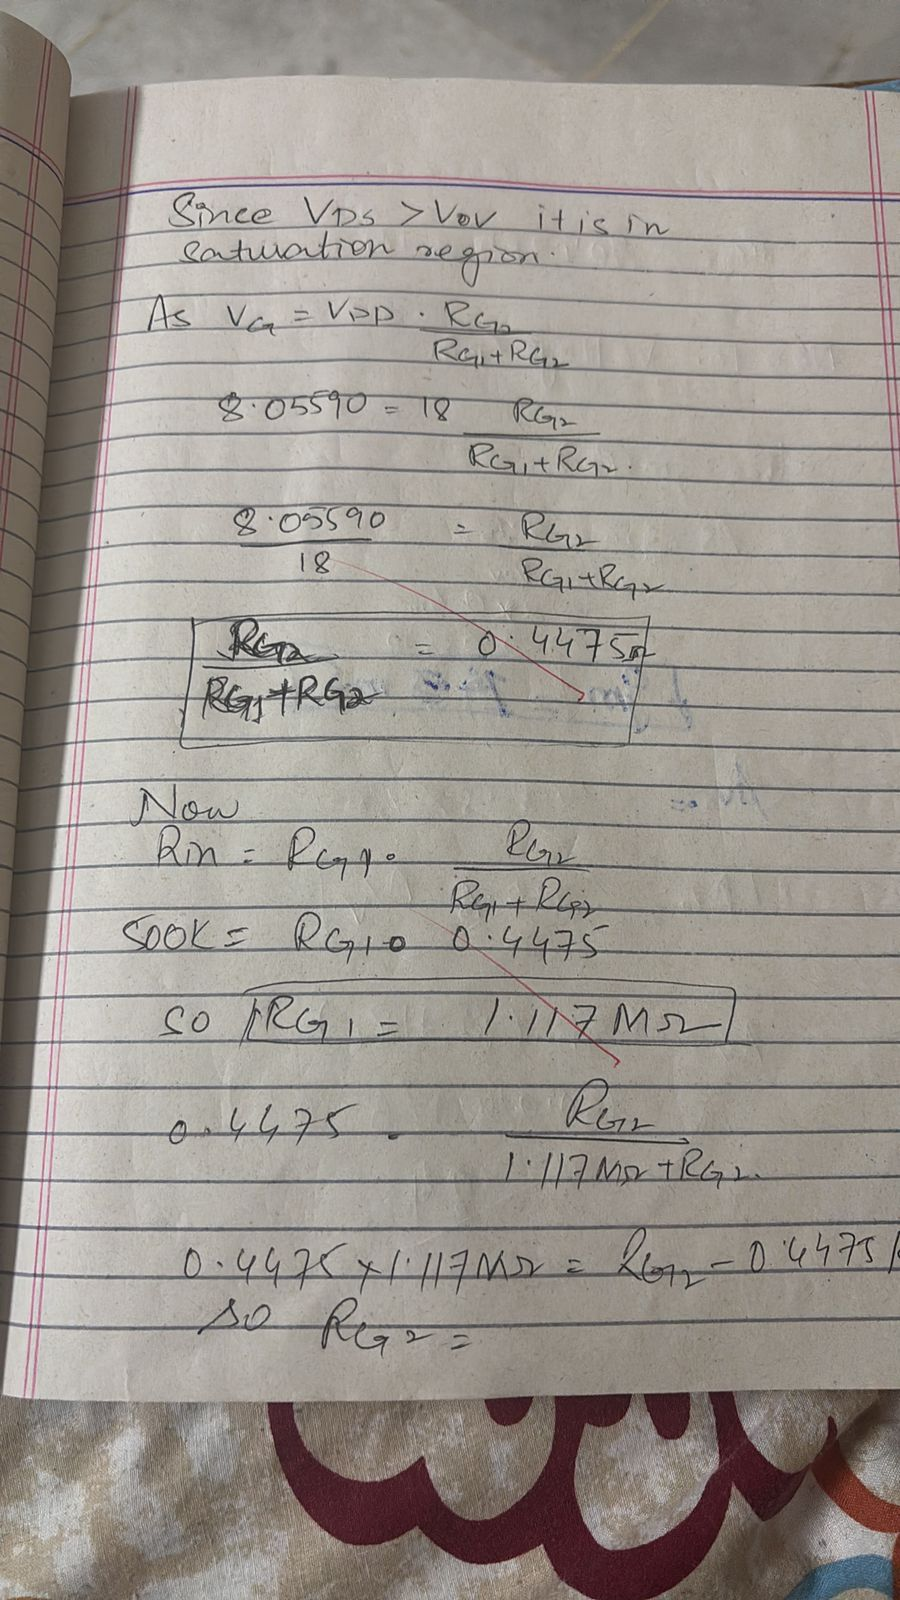 Since VDS > VOV it is in
satuation region.
As VG = VDD . RG2 / RG1+RG2
8.05590 = 18 RG2 / RG1+RG2.
8.05590 / 18 = RG2 / RG1+RG2
RG2 / RG1+RG2 = 0.4475Ω
Now
Rin = RG1 . RG2 / RG1+RG2
500K = RG1 . 0.4475
so RG1 = 1.117MΩ
0.4475 = RG2 / 1.117MΩ+RG2.
0.4475×1.117MΩ = RG2 - 0.4475
so RG2 =